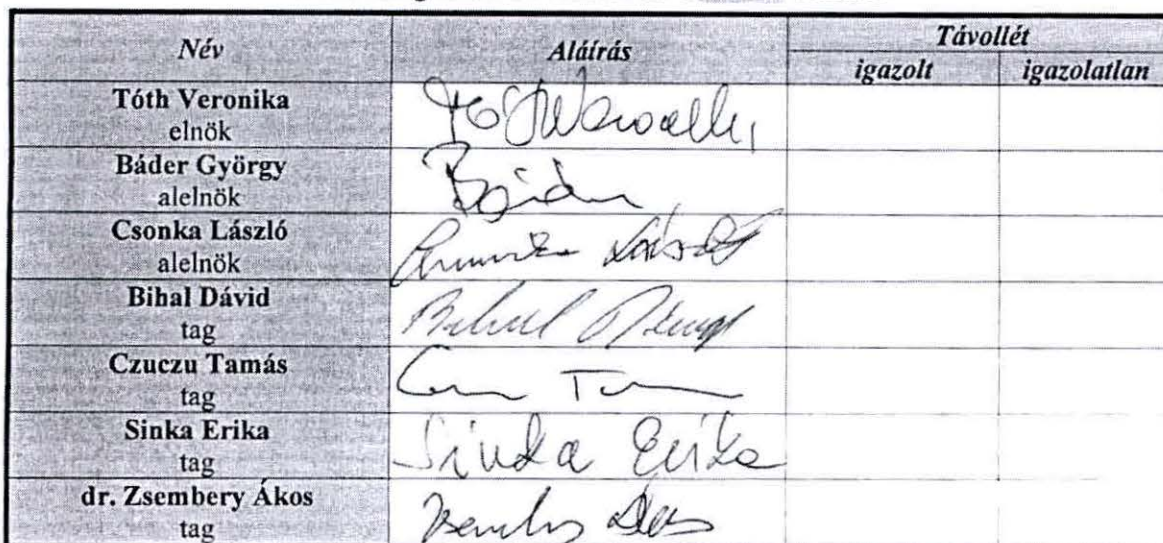 Név Aláírás Távollét
igazolt igazolatlan
Tóth Veronika
elnök
Tóth Veronika
Báder György
alelnök
Báder
Csonka László
alelnök
Csonka László
Bihal Dávid
tag
Bihal Dávid
Czuczu Tamás
tag
Sinka Erika
tag
Sinka Erika
dr. Zsembery Ákos
tag
Zsembery Ákos